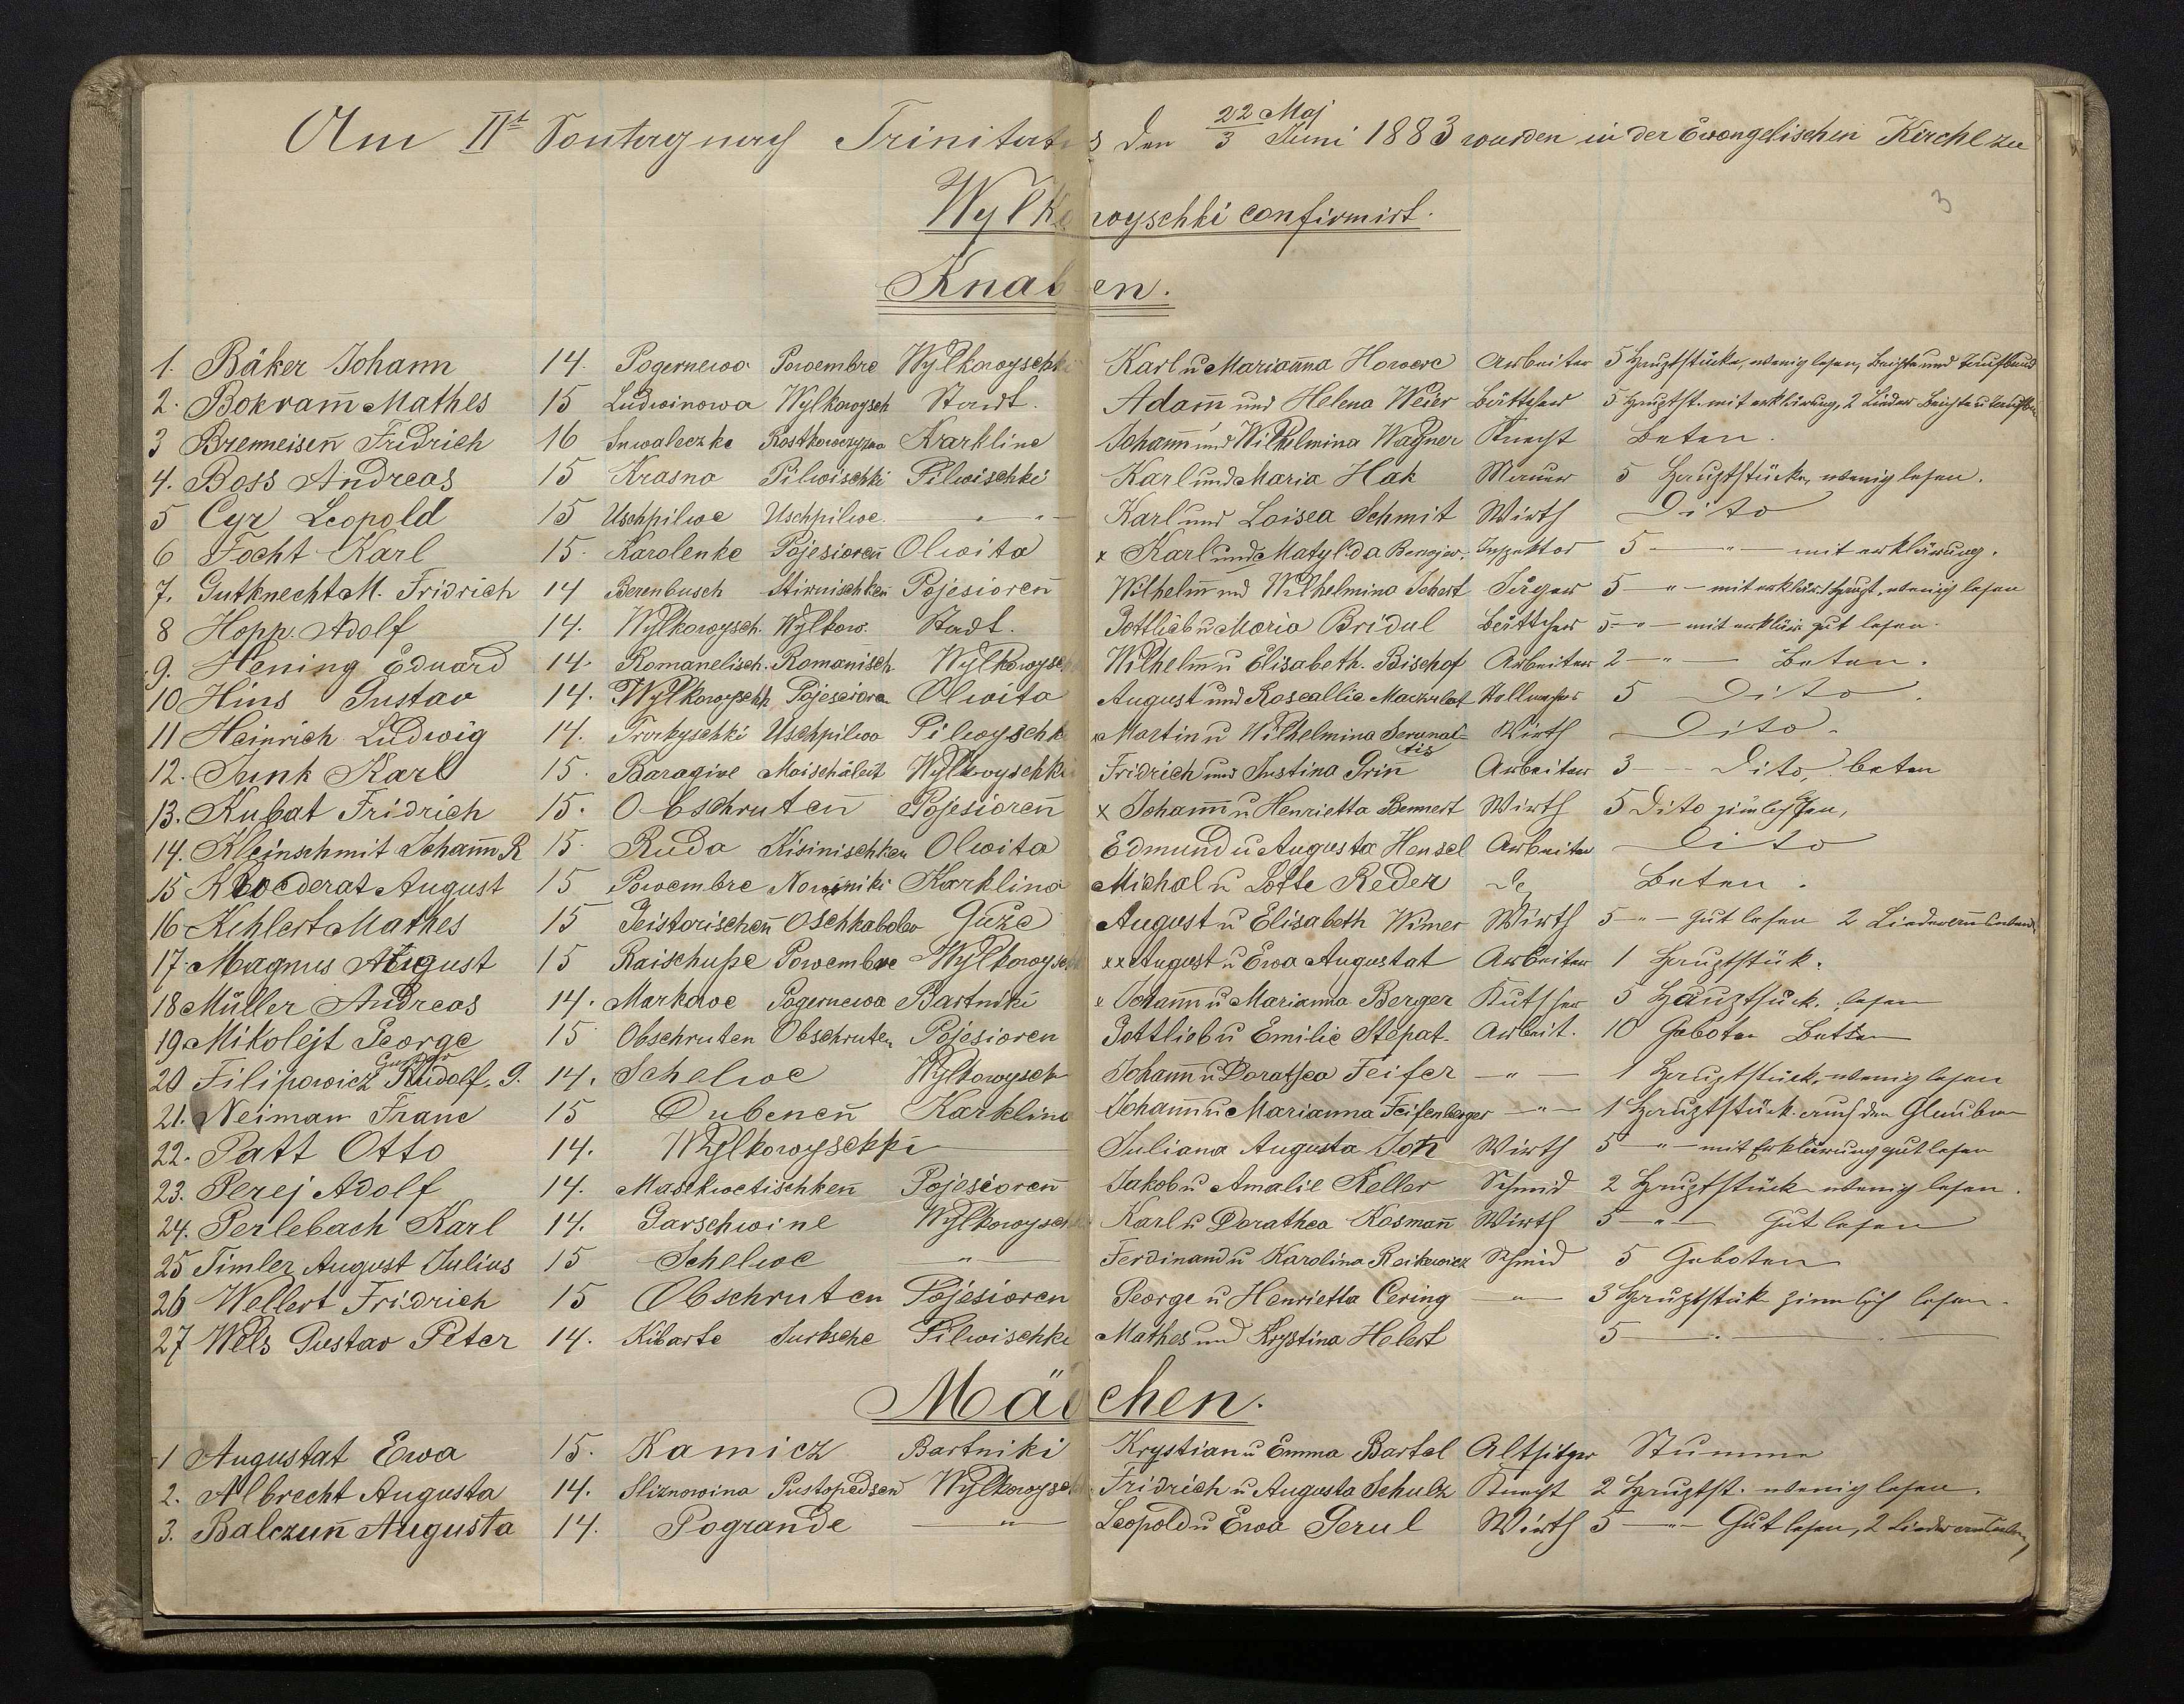 Am IIt Sontag nach Trinitatis den 22 Maj / 3 Juni 1883 wurden in der Ewangelischen Kirche zu
Wylkowyschki confirmirt.
3
Knaben.
1. Bäker Johann 14. Pogernewo Powembre Wylkowyschki Karl u Marianna Howere Arbeiter 5 Hauptstücke, wenig lesen, Beichte und Taufbund
2. Bokram̅ Mathes 15 Ludwinowa Wylkowysch Stadt. Adam̅ und Helena Weier Büttcher 5 Hauptst. mit erklärung, 2 Lieder Beichte u
3 Bremeisen̅ Fridrich 16 Suwaleczke Karkline Johan̅ und Wilhelmina Wagner Knecht Beten.
4. Boss Andreas 15 Krasna Pilwischki Pilwischki Karl und Maria Hak Maurer 5 Hauptstücke, wenig lesen.
5 Cyr Leopold 15 Uschpilwe Uschpilwe. " " Karl und Loisea Schmit Wirth Dito
6 Focht Karl 15. Karolenke Pojesioren̅ Olwita x Karl und Matylda Inspektor 5 — " — mit erklärung.
7. Gutknecht M. Fridrich 14 Berenbusch Stirnischken Pojesioren̅ Wilhelm und Wilhelmina Schert Jäger 5 — " — mit erklär. wenig lesen
8 Hopp. Adolf 14. Wylkowysch. Wylkow. Stadt. Gottlieb u Maria Bridul Büttcher 5 — " — mit erklär gut lesen.
9. Hening Eduard 14. Romanelisch. Romanisch Wylkowysch Wilhelm u Elisabeth. Bischof Arbeiter 2 — " — Beten.
10 Hins Gustav 14. Wylkowyschk Pojesiora Olwita August und Roseallie 5 Dito.
11 Heinrich Ludwig 14. Uschpilwa Pilwyschk x Martin u Wilhelmina Wirth Dito.
12. Junk Karl 15. Baragine Maischäleit Wylkowyschki Fridrich und Justina Grin̅ Arbeiter 3 — Dito, beten
13. Kubat Fridrich 15. Obschruten̅ Pojesioren̅ x Johan̅ u Henrietta Bennert Wirth 5 Dito
14. Kleinschmit Johan̅ R 15. Ruda Kisinischken Olwita Edmund u Augusta Hensel Arbeiter Dito
15 August 15 Powembre Nowiniki Karklina Michal u Lotte Reder Beten.
16 Kehlert Mathes 15 Oschkabale Guže August u Elisabeth Wimer Wirth 5 — " — gut lesen 2 Lieder
17. Magnus August 15 Raischuße Powembre Wylkowysch xx August u Ewa Augustat Arbeiter 1 Hauptstük.
18 Müller Andreas 14. Markowe Pogernewa Bartniki x Johan̅ u Marianna Berger Kutscher 5 Hauptstück. lesen
19 Mikolejt George 15 Obschruten Obschruten Pojesioren Gottlieb u Emilie Stepat. Arbeit. 10 Geboten
20 Filipowicz Gustav Rudolf. G. 14. Schelwe Wylkowysch Johan̅ u Dorathea Feifer — " — 1 Hauptstück, wenig lesen
21. Neiman Franc 15 Dubenen̅ Karklina Johan̅ u Marianna Feifenberger — " — 1 Hauptstück. auch den Glauben
22. Patt Otto 14. Wylkowyschki Juliana Augusta Wirth 5 — " — mit Erklärung gut lesen
23. Perej Adolf 14. Maskwetischken̅ Pojesioren̅ Jakob u Amalie Keller Schmid 2 Hauptstück wenig lesen.
24. Perlebach Karl 14. Garschwine Wylkowyschk Karl u Dorathea Kosman̅ Wirth 5 — " — Gut lesen
25 Timler August Julius 15 Schelwe — " — Ferdinand u Karolina Raikewicz Schmid 5 Geboten
26 Wellert Fridrich 15 Obschruten Pojesioren George u Henrietta Cering — " — 3 Hauptstük zimlich lesen.
27 Wels Gustav Peter 14. Kibarte Surbsche Pilwischki Mathes und Krystina Helert 5 — " —
Mädchen.
1 Augustat Ewa 15. Kamicz Bartniki Krystian u Emma Bartel Altsitzer Stumme
2. Albrecht Augusta 14. Sliznowina Wylkowysch Fridrich u Augusta Schulz Knecht 2 Hauptst. wenig lesen.
3. Balczun̅ Augusta 14. Pogrande — " — Leopold u Ewa Gerul Wirth 5 — " — Gut lesen, 2 Lieder